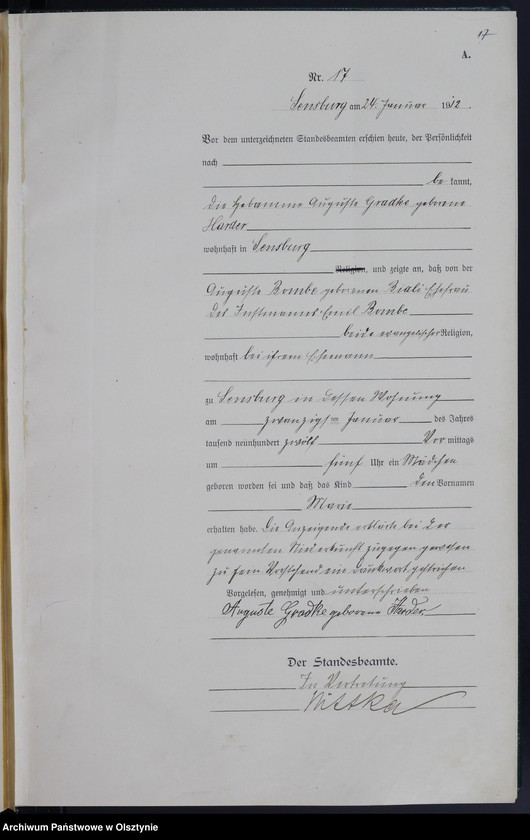 17
A.
Nr. 17
Sensburg am 24. Januar 1912.
Vor dem unterzeichneten Standesbeamten erschien heute, der Persönlichkeit
nach
be kannt,
die Hebamme Auguste Gradke geborene
Harder
wohnhaft in Sensburg
Religion, und zeigte an, daß von der
Auguste Bombe geborenen Biali Ehefrau
des Instmanns Emil Bombe
beide evangelischer Religion,
wohnhaft bei ihrem Ehemann
zu Sensburg in dessen Wohnung
am zwanzigsten Januar des Jahres
tausend neunhundert zwölf Vor mittags
um fünf Uhr ein Mädchen
geboren worden sei und daß das Kind den Vornamen
Marie
erhalten habe. Die Anzeigende erklärte bei der
genannten Niederkunft zugegen gewesen
zu sein. Vorstehend ein Druckwort gestrichen
Vorgelesen, genehmigt und unterschrieben
Auguste Gradke geborene Harder
Der Standesbeamte.
In Vertretung
Nittka
Archiwum Państwowe w Olsztynie